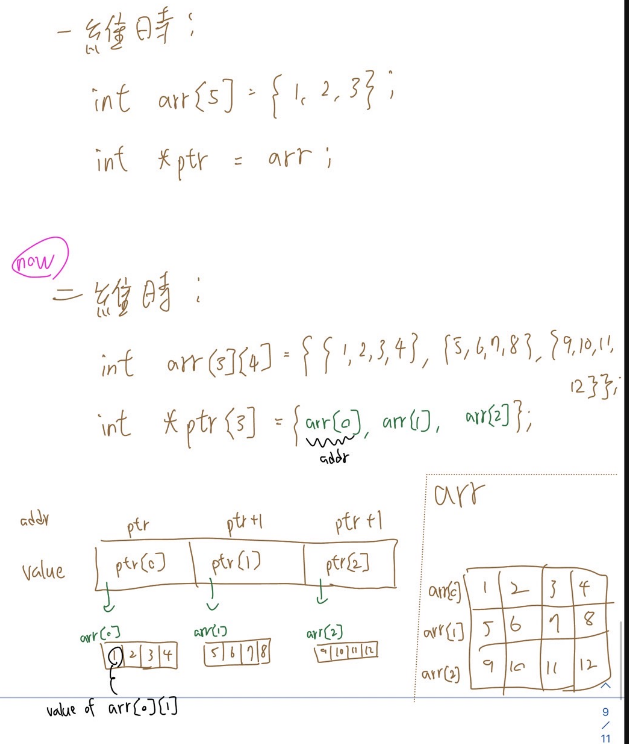 一維時：
int arr[5] = {1, 2, 3};
int *ptr = arr;
now
二維時：
int arr[3][4] = {{1,2,3,4}, {5,6,7,8}, {9,10,11,
12}};
int *ptr[3] = {arr[0], arr[1], arr[2]};
addr
addr ptr ptr+1 ptr+1
value ptr[0] ptr[1] ptr[2]
arr[0] arr[1] arr[2]
1 2 3 4 5 6 7 8 9 10 11 12
value of arr[0][1]
arr
arr[0] 1 2 3 4
arr[1] 5 6 7 8
arr[2] 9 10 11 12
9
/
11